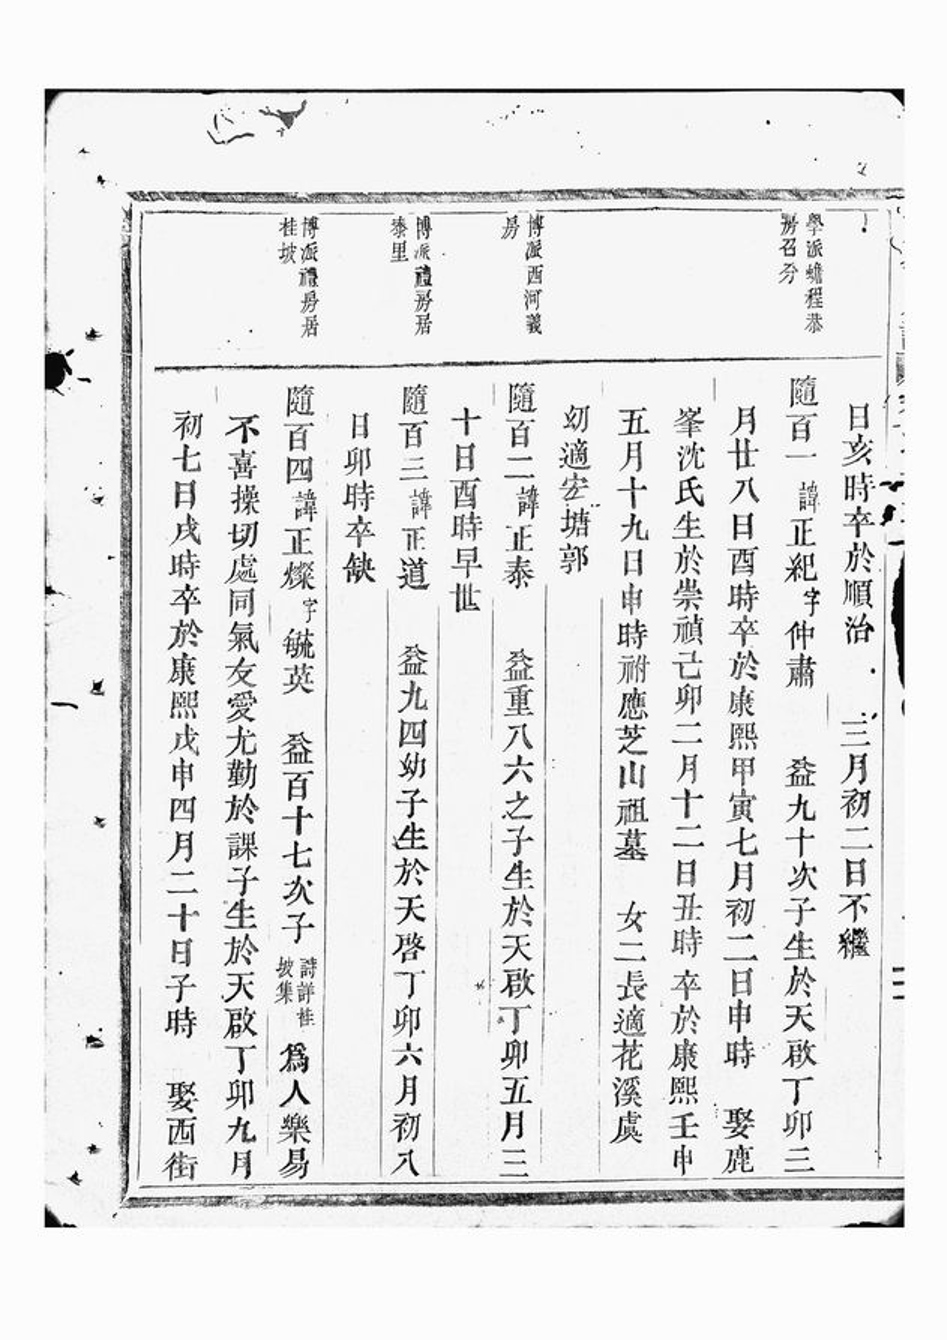 日亥時卒於順治 三月初二日不繼
學派蟾程恭
房召分
隨百一 諱正紀字仲肅 益九十次子生於天啟丁卯三
月廿八日酉時卒於康熙甲寅七月初二日申時 娶鹿
峯沈氏生於崇禎己卯二月十二日丑時卒於康熙壬申
五月十九日申時祔應芝山祖墓 女二長適花溪虞
幼適宏塘郭
博派西河義
房
隨百二諱正泰 益重八六之子生於天啟丁卯五月三
十日酉時早世
博派禮房居
泰里
隨百三諱正道 益九四幼子生於天啓丁卯六月初八
日卯時卒缺
博派禮房居
桂坡
隨百四諱正燦字毓英 益百十七次子詩詳桂坡集為人樂易
不喜操切處同氣友愛尤勤於課子生於天啟丁卯九月
初七日戌時卒於康熙戊申四月二十日子時 娶西街